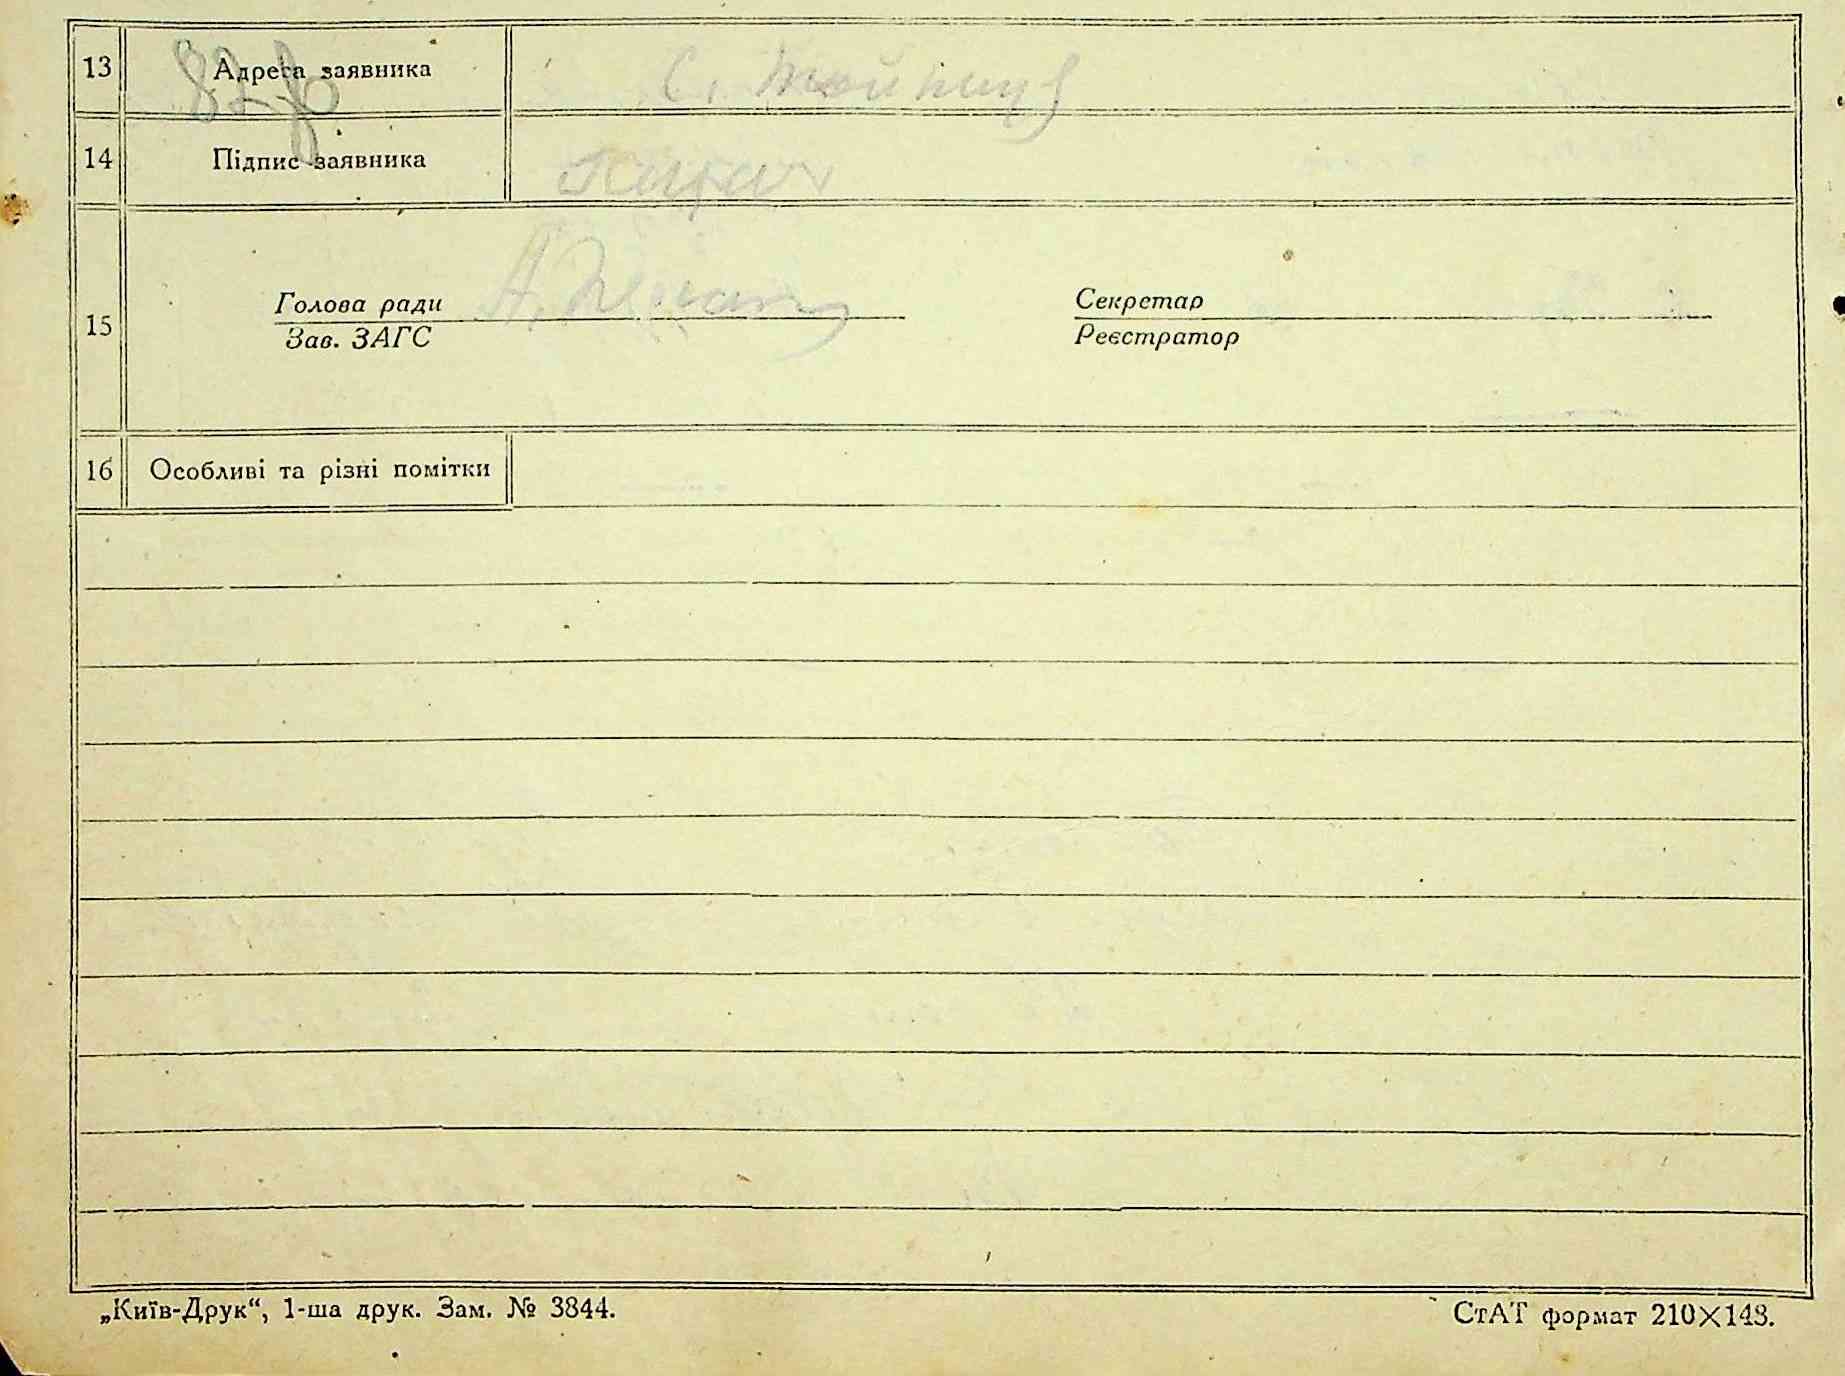 13 Адреса заявника С.
14 Підпис заявника
15 Голова ради А. Секретар
Зав. ЗАГС Реєстратор
16 Особливі та різні помітки
„Київ-Друк“, 1-ша друк. Зам. № 3844. СтАТ формат 210×148.